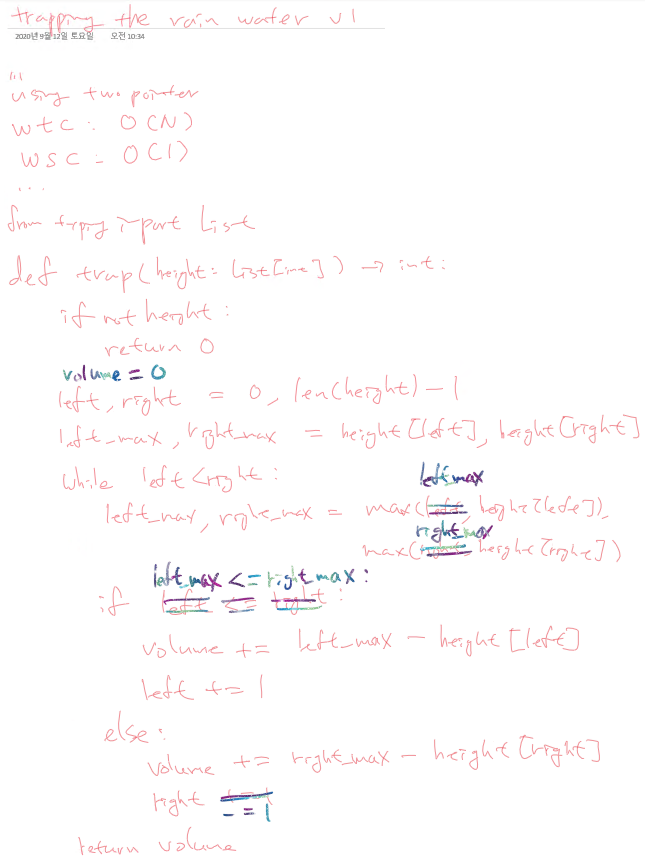 trapping the rain water v1
2020년 9월 12일 토요일 오전 10:34
'''
using two pointer
WTC : O(N)
WSC : O(1)
...
from typing import List
def trap(height: List[int]) -> int:
if not height:
return 0
volume = 0
left, right = 0, len(height) - 1
left_max, right_max = height[left], height[right]
while left < right:
left_max
left_max, right_max = max(left, height[left]),
right_max
max(right, height[right])
left_max <= right_max:
if left <= right:
volume += left_max - height[left]
left += 1
else:
volume += right_max - height[right]
right += 1
-= 1
return volume